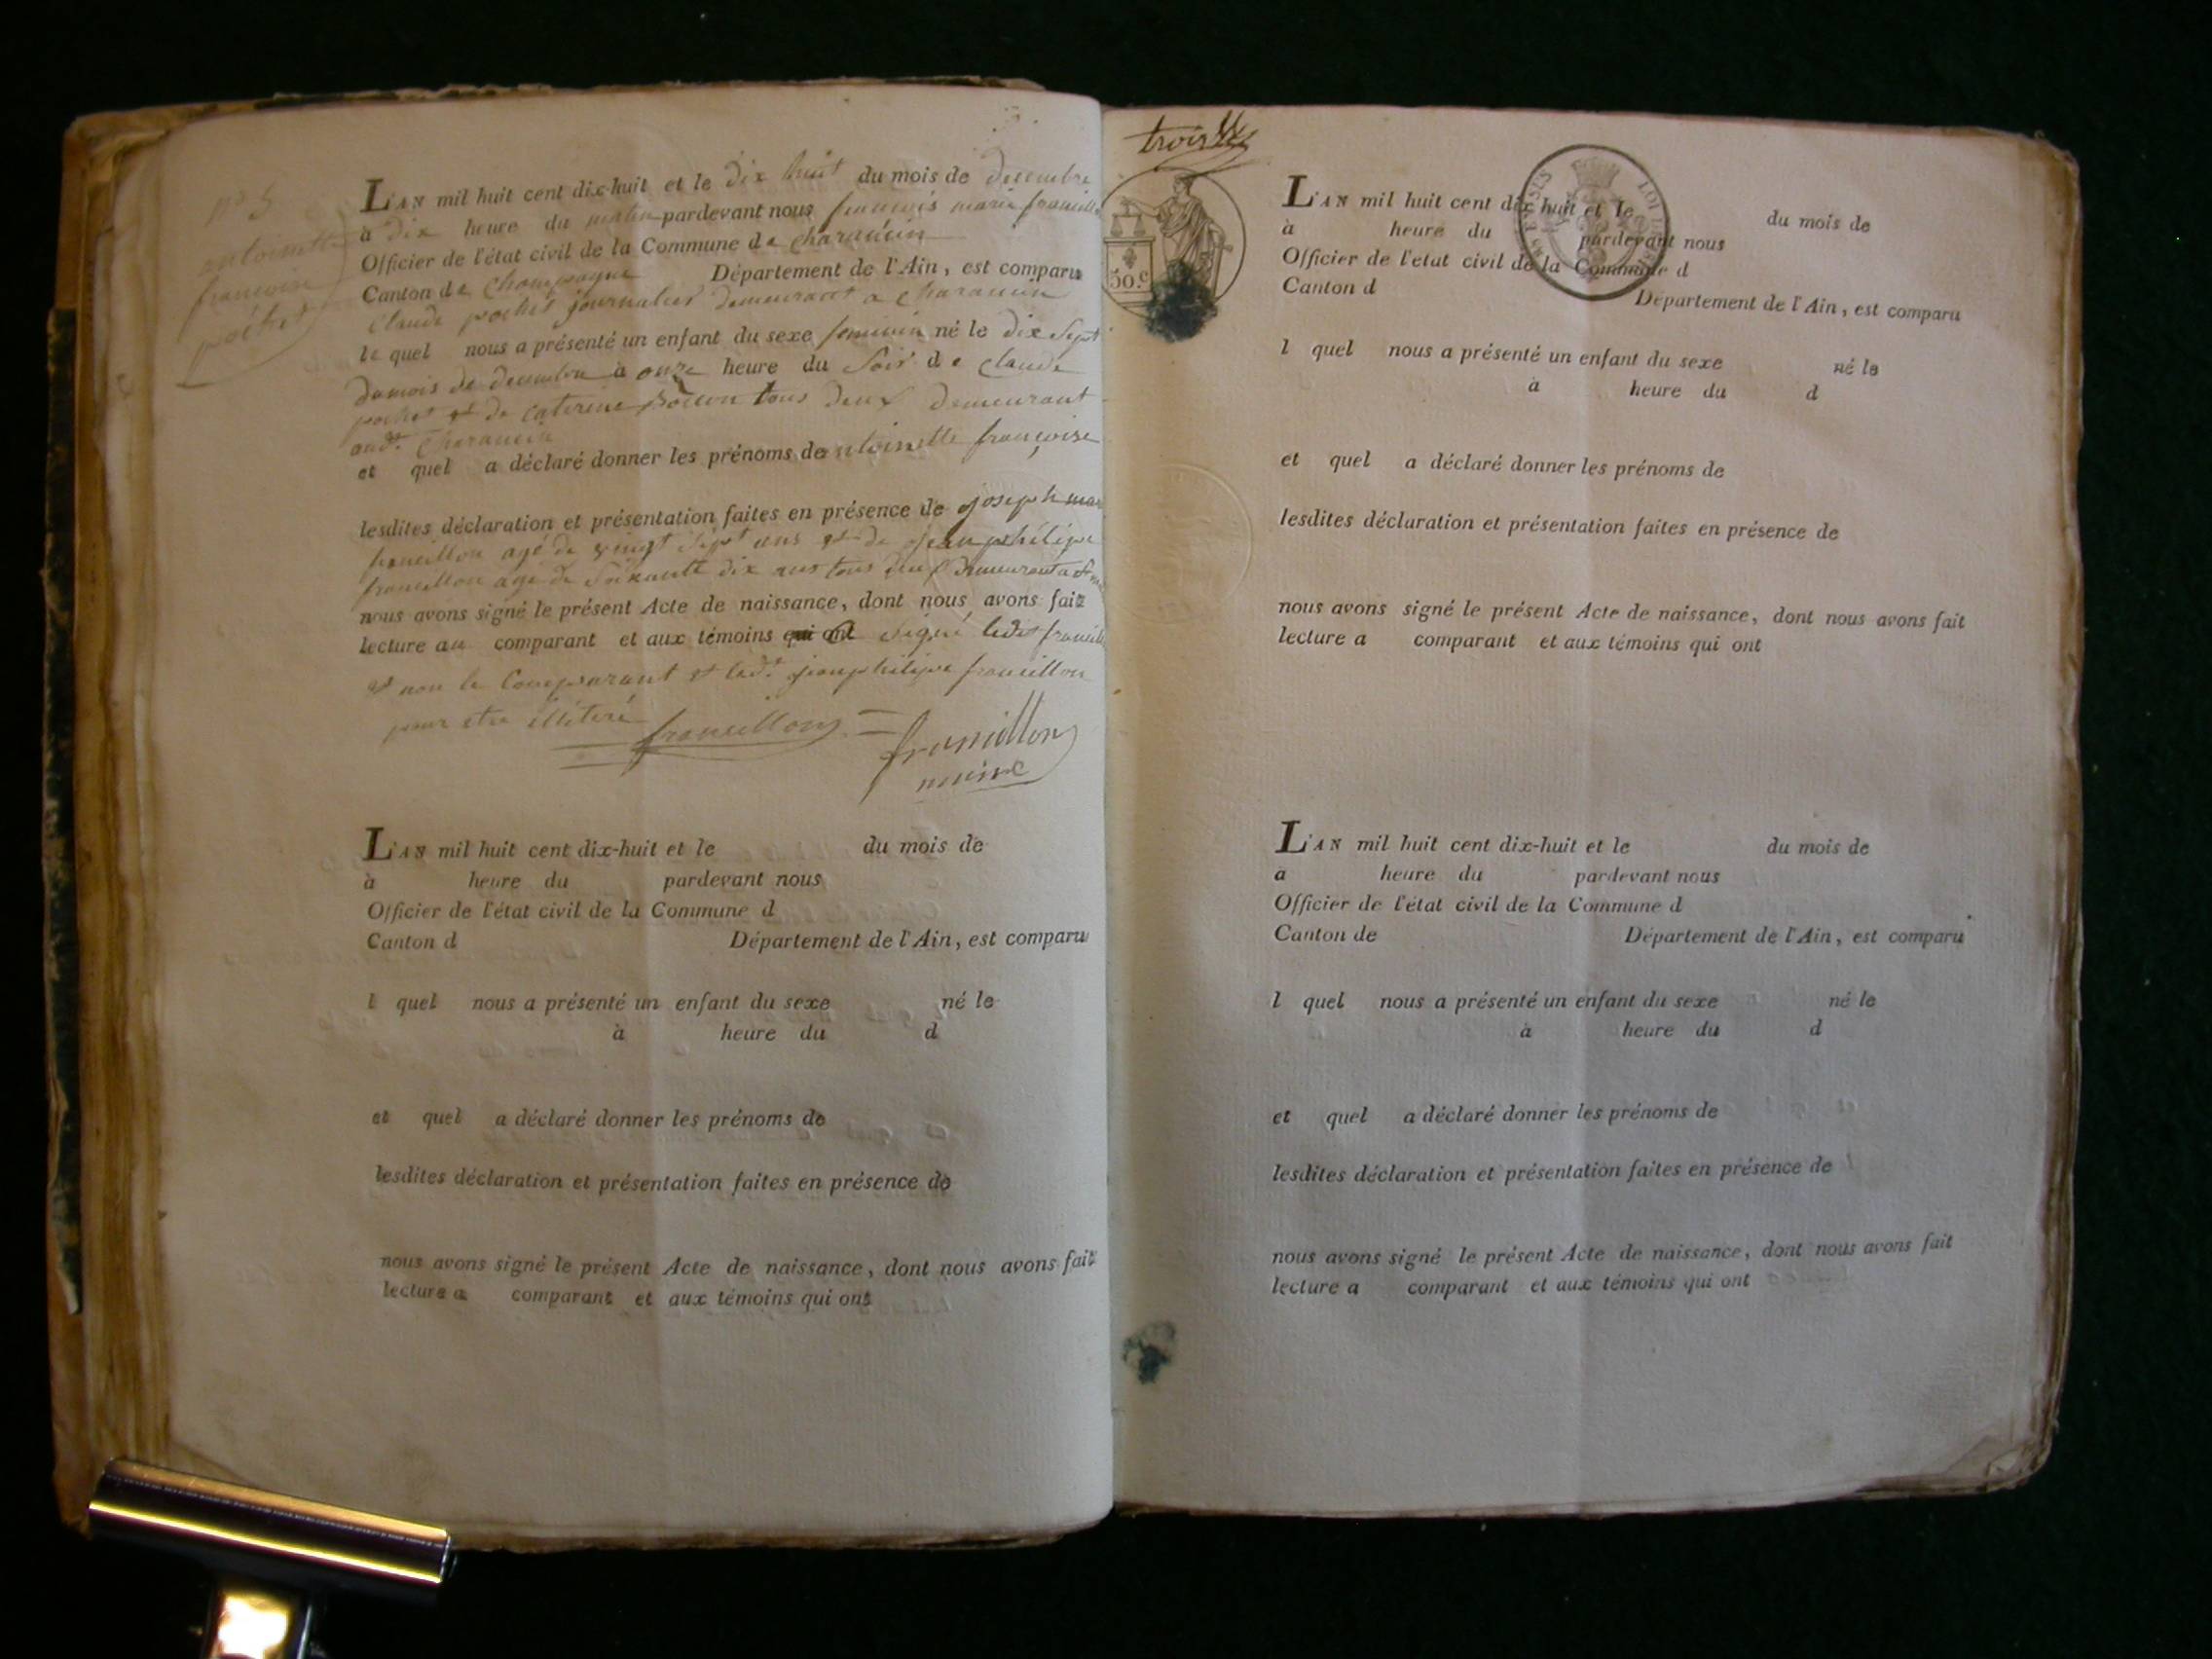 n° 5
antoinette
françoise
pochet
L'AN mil huit cent dix-huit et le dix huit du mois de decembre
à dix heure du matin pardevant nous françois marie francillon
Officier de l'état civil de la Commune de charancin
Canton de Champagne Département de l'Ain, est comparu
Claude pochet journalier demeurant a Charancin
le quel nous a présenté un enfant du sexe feminin né le dix sept
du mois de decembre à onze heure du soir de claude
pochet et de caterine tous deux demeurant
aud.t Charancin
et quel a déclaré donner les prénoms de antoinette françoise
lesdites déclaration et présentation faites en présence de joseph marie
francillon agé de vingt sept ans et de jean philipe
francillon agé de soixante dix ans tous deux demeurant a
nous avons signé le présent Acte de naissance, dont nous avons fait
lecture au comparant et aux témoins qui ont signé francillon
et non le Comparant et led.t jean philipe francillon
pour etre illiteré francillon francillon
maire
L'AN mil huit cent dix-huit et le du mois de
à heure du pardevant nous
Officier de l'état civil de la Commune d
Canton d Département de l'Ain, est comparu
l quel nous a présenté un enfant du sexe né le
à heure du d
et quel a déclaré donner les prénoms de
lesdites déclaration et présentation faites en présence de
nous avons signé le présent Acte de naissance, dont nous avons fait
lecture a comparant et aux témoins qui ont
trois
50.c
L'AN mil huit cent dix huit et le du mois de
à heure du pardevant nous
Officier de l'état civil de la Commune d
Canton d Département de l'Ain, est comparu
l quel nous a présenté un enfant du sexe né le
à heure du d
et quel a déclaré donner les prénoms de
lesdites déclaration et présentation faites en présence de
nous avons signé le présent Acte de naissance, dont nous avons fait
lecture a comparant et aux témoins qui ont
L'AN mil huit cent dix-huit et le du mois de
à heure du pardevant nous
Officier de l'état civil de la Commune d
Canton de Département de l'Ain, est comparu
l quel nous a présenté un enfant du sexe né le
à heure du d
et quel a déclaré donner les prénoms de
lesdites déclaration et présentation faites en présence de
nous avons signé le présent Acte de naissance, dont nous avons fait
lecture a comparant et aux témoins qui ont